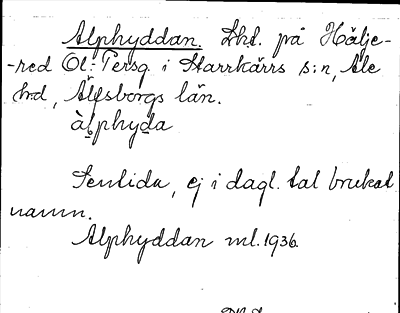 Alphyddan. Lht. på Hälje-
-red Ol-Persg. i Starrkärrs s:n, Ale
hrd, Älvsborgs län.
àlphyda
Sentida, ej i dagl. tal brukat
namn.
Alphyddan ml. 1936.